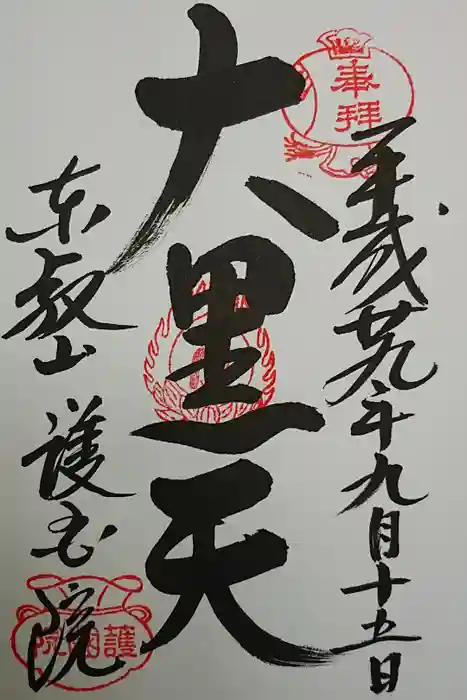 奉拝
平成廿九年九月十五日
大黒天
東叡山 護国院
護國院